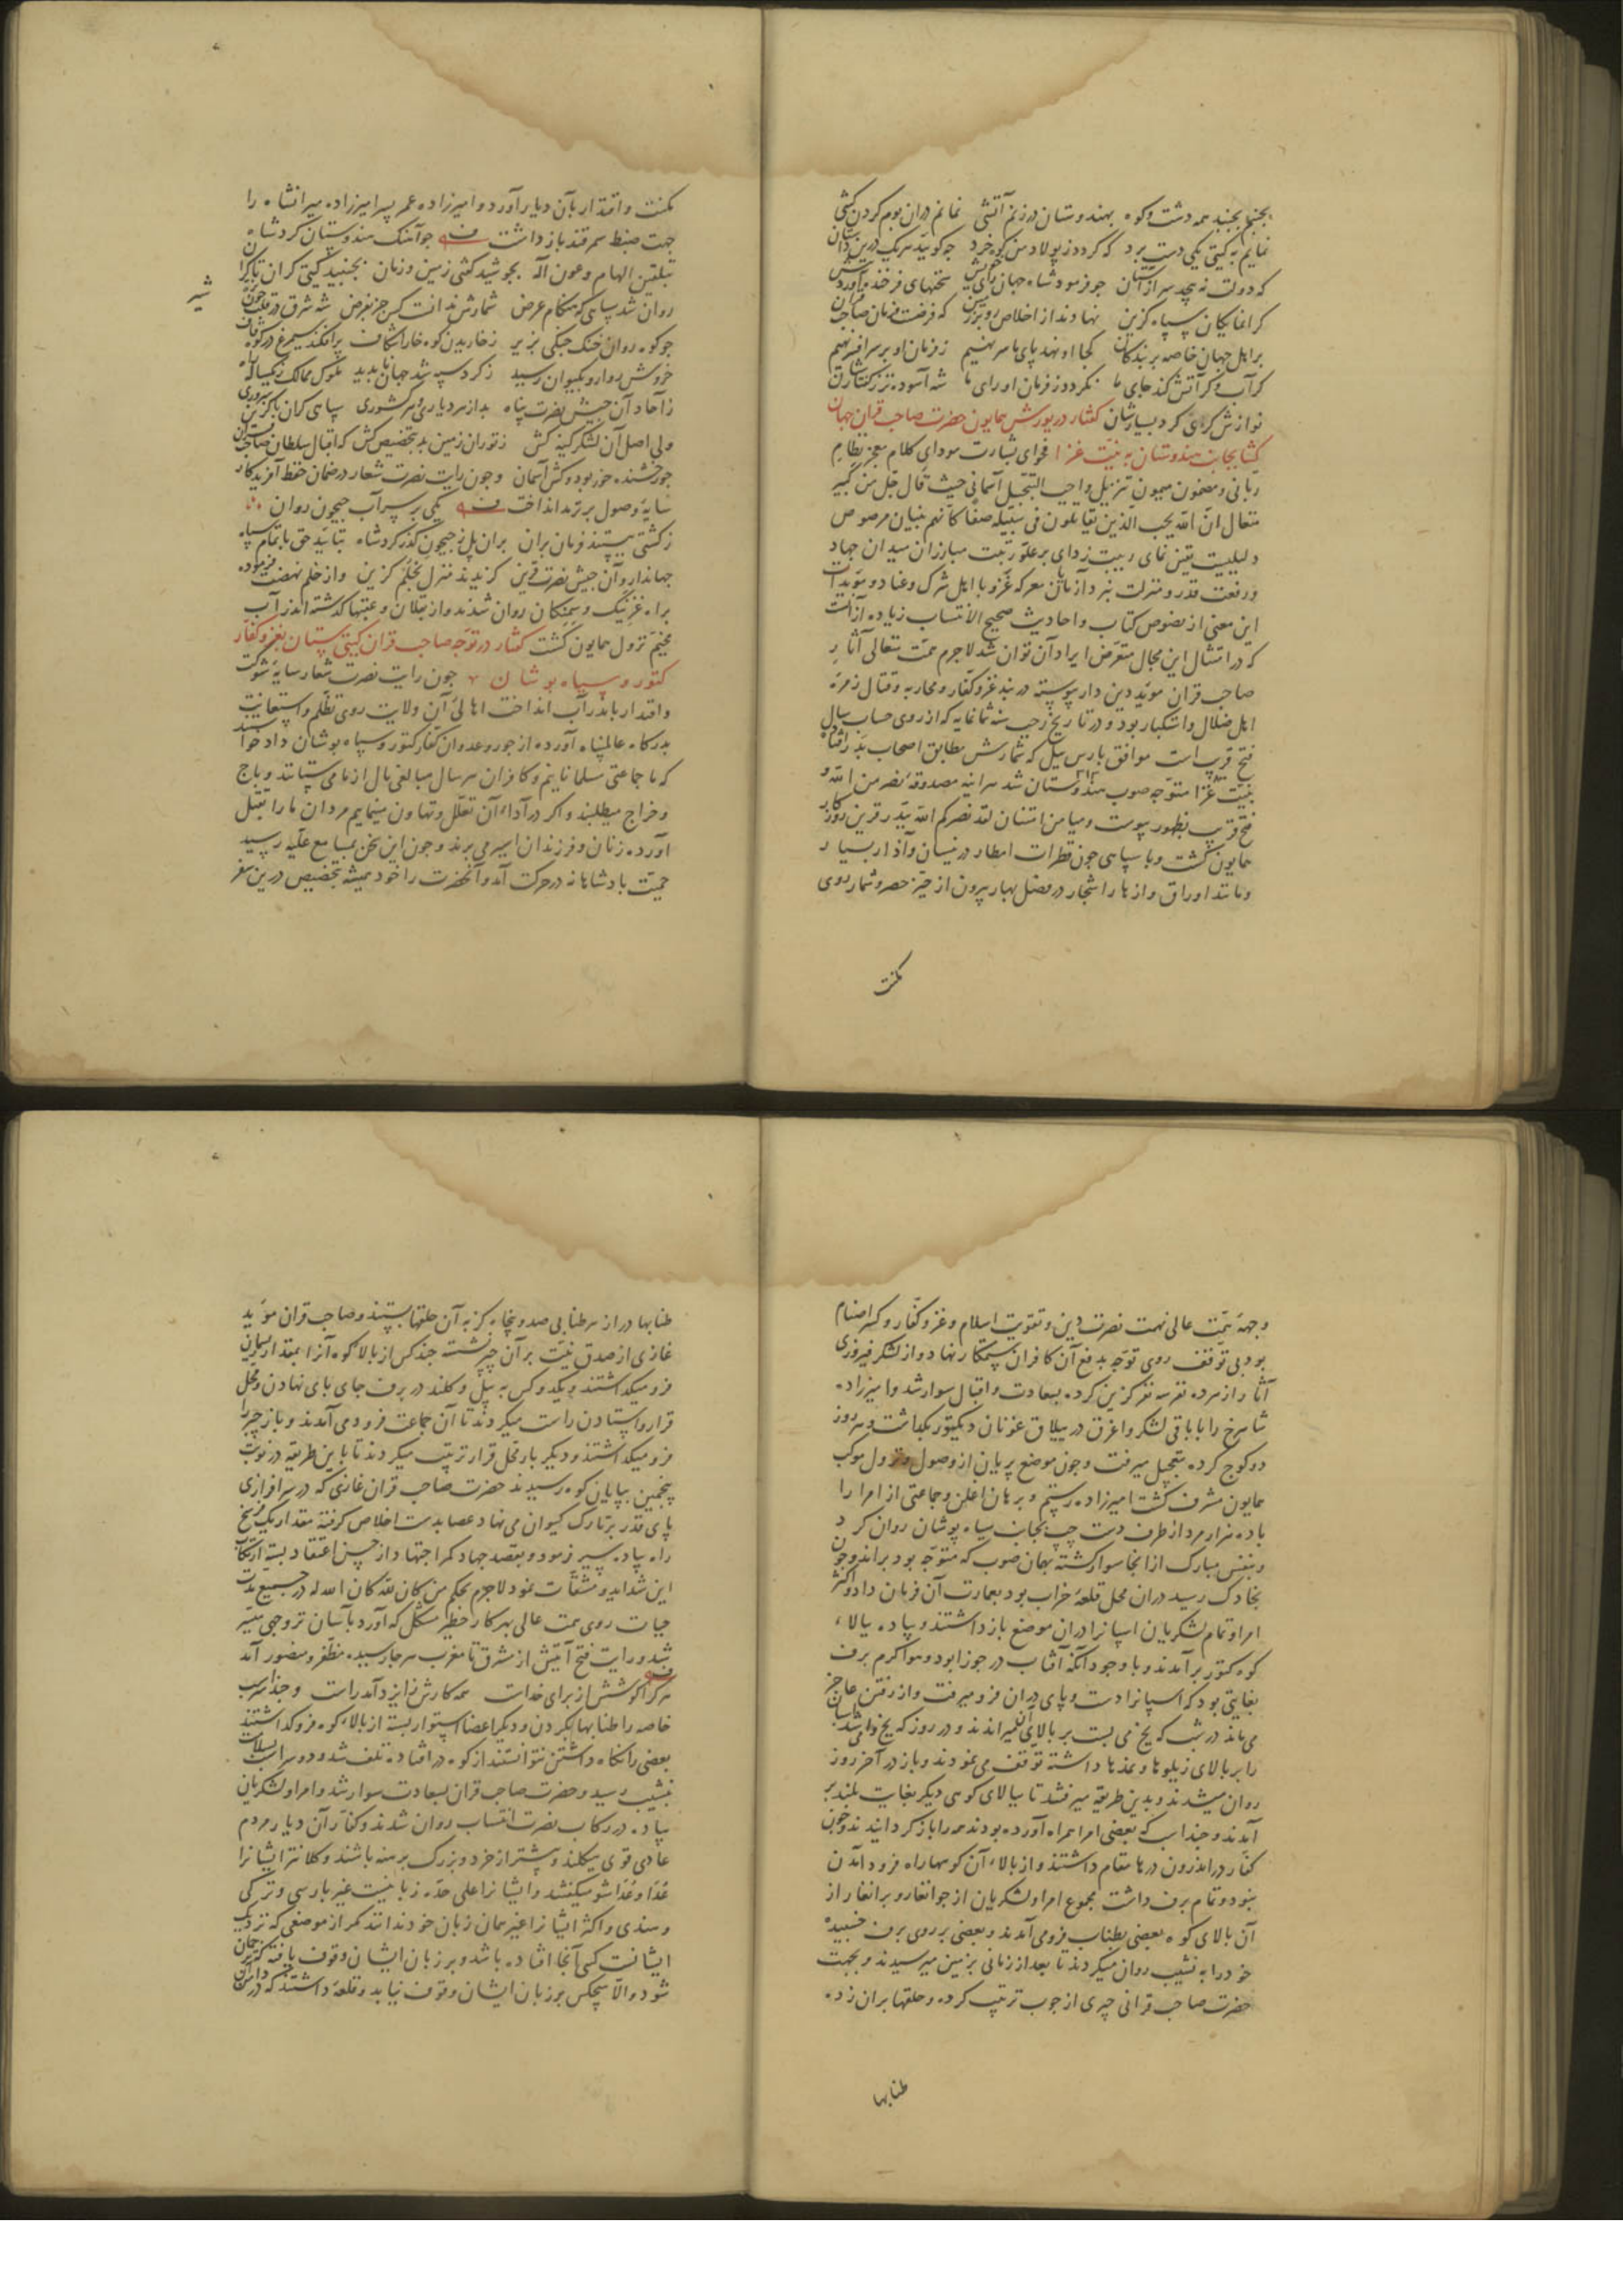 بجنبم بجنبد همه دشت و کوه بهندوستان در زنم آتشی نمانم دران بوم گردن کشی
نمایم به گیتی یکی دست برد که گردد ز پولاد من کوه خرد چو گوید سر یک درین داستان
که دولت نه پیچد سر از آستان جو فرمود شاه جهان رای خویش سخنهای فرخنده آورد پیش
کرانمایکان سپاه گزین نهادند از اخلاص رو بر زمین که فرضست فرمان صاحب قران
بر اهل جهان خاصه بر بندکان کجا او نهد پای ما سر نهیم ز فرمان او بر سر افسر نهیم
کر آب و کر آتش کند جای ما نکردد ز فرمان او رای ما شه آسوده تر ز گفتارشان
نوازش کری کرد بسیارشان گفتار در یورش همایون حضرت صاحب قران جهان
کشا بجانب هندوستان به نیت غزا فحوای بشارت مودای کلام معجز نظام
ربانی و مضمون میمون تنزیل واجب التبجیل آسمانی حیث قال جل من کبیر
متعال ان الله یحب الذین یقاتلون فی سبیله صفا کانهم بنیان مرصوص
دلیلیست یقین نمای ریبت زدای بر علو رتبت مبارزان میدان جهاد
و رفعت قدر و منزلت نبرد آزمایان معرکه غزو با اهل شرک و عناد و مویدات
این معنی از نصوص کتاب و احادیث صحیح الانتساب زیاده از آنست
که در امتثال این مجال متعرض ایراد آن توان شد لاجرم همت تعالی آثار
صاحب قران موید دین دار پیوسته در بند غزو کفار و محاربه و قتال زمره
اهل ضلال و استکبار بود و در تاریخ رجب سنه ثمانمایه که از روی حساب سال
فتح قریب است موافق بارس ییل که شمارش مطابق اصحاب بدر افتاد
بنیت غزا متوجه صوب هندوستان شد هراینه مصدوقه نصر من الله و
فتح قریب بظهور پیوست و میامن امتنان لقد نصرکم الله ببدر قرین روزکار
همایون گشت و با سپاهی جون قطرات امطار در نیسان و آذار بسیار
و مانند اوراق و ازهار اشجار در فصل بهار بیرون از حیز حصر و شمار روی
مکنت
مکنت و اقتدار بآن دیار آورد و امیرزاده عمر پسر امیرزاده میرانشاه را
جهت ضبط سمرقند باز داشت جو آهنک هندوستان کرد شاه
بتلقین الهام و عون آله بجوشید کفتی زمین و زمان بجنبید گیتی کران تا کران
روان شد سپاهی که هنکام عرض شمارش ندانست کس جز بفرض شه شرق در قلب جون
شیر
جو کوه روان خنک جنکی بزیر ز خاریدن کوه خارا شکاف پر افکند سیمرغ در کوه قاف
خروش روارو بکیوان رسید ز کرد سپه شد جهان ناپدید ملوک ممالک
ز آحاد آن جیش نصرت پناه بد از هر دیاری و هر کشوری سپاهی کران باکزین سروری
ولی اصل آن لشکر کینه کش ز توران زمین بد بتخصیص کش که اقبال سلطان صاحب قران
جو رخشنده خور بود و کش آسمان و جون رایت نصرت شعار در ضمان حفظ آفریدکار
سایه وصول بر ترمذ انداخت یکی بر سر آب جیحون روان
ز کشتی ببستند فرمان بران بران پل ز جیحون گذر کرد شاه بتایید حق با تمام سپاه
جهاندار و آن جیش نصرت قرین کزیدند منزل بخلم گزین و از خلم نهضت فرموده
براه غزنیک و سمنکان روان شدند و از بقلان و عقبها کذشته اندراب
مخیم نزول همایون گشت گفتار در توجه صاحب قران گیتی ستان بغزو کفار
کتور و سیاه پوشان جون رایت نصرت شعار سایه شوکت
و اقتدار باندراب انداخت اهالی آن ولایت روی تظلم و استغاثت
بدرکاه عالمپناه آورده از جور و عدوان کفار کتور و سیاه پوشان داد خواستند
که ما جماعتی مسلمانانیم و کافران هر سال مبالغی مال از ما می ستانند و باج
و خراج میطلبند و اکر در آداء آن تعلل و تهاون مینماییم مردان ما را بقتل
آورده زنان و فرزندان اسیر می برند و جون این سخن بمسامع علیه رسید
حمیت پادشاهانه در حرکت آمد و آنحضرت را خود همیشه بتخصیص درین سفر
وجهه همت عالی نهمت نصرت دین و تقویت اسلام و غزو کفار و کسر اصنام
بود بی توقف روی توجه بدفع آن کافران ستمکار نهاد و از لشکر فیروزی
آثار از هر ده نفر سه نفر گزین کرده بسعادت و اقبال سوار شد و امیرزاده
شاهرخ را با باقی لشکر و اغرق در ییلاق غونان دیکتور بکذاشت و هر روز
دو کوج کرده بتعجیل میرفت و جون موضع پریان از وصول و نزول موکب
همایون مشرف گشت امیرزاده رستم و برهان اغلن و جماعتی از امرا را
با ده هزار مرد از طرف دست چپ بجانب سیاه پوشان روان کرد
و بنفس مبارک از انجا سوار کشته بهمان صوب که متوجه بود براند و جون
بخاوک رسید دران محل قلعه خراب بود بعمارت آن فرمان داد و اکثر
امرا و تمام لشکریان اسپانرا دران موضع باز داشتند و پیاده ببالاء
کوه کتور برآمدند و با وجود آنکه آفتاب در جوزا بود و هوا کرم برف
بغایتی بود که اسپانرا دست و پای دران فرو میرفت و از رفتن عاجز
می ماند در شب که یخ می بست بر بالای آن میراندند و در روز که یخ وا می شد اسبان
را بر بالای زیلوها و نمدها داشته توقف می نمودند و باز در آخر روز
روان میشدند و بدین طریقه میرفتند تا ببالای کوهی دیکر بغایت بلند بر
آمدند و جند اسب که بعضی امرا همراه آورده بودند همه را باز کردانیدند و جون
کفار در اندرون درها مقام داشتند و از بالاء آن کوهها راه فرود آمدن
نبود و تمام برف داشت مجموع امرا و لشکریان از جوانغار و برانغار از
آن بالای کوه بعضی بطناب فرو می آمدند و بعضی بر روی برف خسبیده
خود را به نشیب روان میکردند تا بعد از زمانی بزمین میرسیدند و بجهت
حضرت صاحب قرانی چیزی از جوب ترتیب کرده و حلقها بران زده
طنابها
طنابها دراز هر طنابی صد و پنجاه کز به آن حلقها بستند و صاحب قران موید
غازی از صدق نیت بر آن چیز نشسته جند کس از بالا کوه آنرا بمقدار ریسمان
فرو میکذاشتند و یک دو کس به بیل و کلند در برف جای پای نهادن و محل
قرار و ایستادن راست میکردند تا آن جماعت فرود می آمدند و باز چیز را
فرو میکذاشتند و دیکر بار محل قرار ترتیب میکردند تا باین طریقه در نوبت
پنجمین بپایان کوه رسیدند حضرت صاحب قران غازی که در سرافرازی
پای قدر بر تارک کیوان می نهاد عصا بدست اخلاص کرفته مقدار یک فرسخ
راه پیاده سیر فرمود و بقصد جهاد کمر اجتهاد از حسن اعتقاد بسته ارتکاب
این شداید و مشقات نمود لاجرم بحکم من کان لله کان الله له در جمیع مدت
حیات روی همت عالی بهر کار خطیر مشکل که آورد بآسان تر وجهی میسر
شد و رایت فتح آیتش از مشرق تا مغرب هر جا رسید مظفر و منصور آمد
هر کرا کوشش از برای خداست همه کارش ز ایزد آمد راست و جند اسب
خاصه را طنابها بکردن و دیکر اعضا استوار بسته از بالاء کوه فرو کذاشتند
بعضی را نکاه داشتن نتوانستند از کوه درافتاده تلف شد و دو سر اسب بسلامت
بنشیب رسید و حضرت صاحب قران بسعادت سوار شد و امرا و لشکریان
پیاده در رکاب نصرت انتساب روان شدند و کفار آن دیار مردم
عادی قوی هیکلند و بیشتر از خرد و بزرک برهنه باشند و کلانتر ایشانرا
غدا و غداشو میکفتند و ایشانرا علی حده زبانیست غیر پارسی و ترکی
و هندی و اکثر ایشانرا غیر همان زبان خود ندانند مکر از موضعی که نزدیک
ایشانست کسی آنجا افتاده باشد و بر زبان ایشان وقوف یافته که ترجمان
شود و الا هیچکس بر زبان ایشان وقوف نیابد و قلعه داشتند که در دامن آن